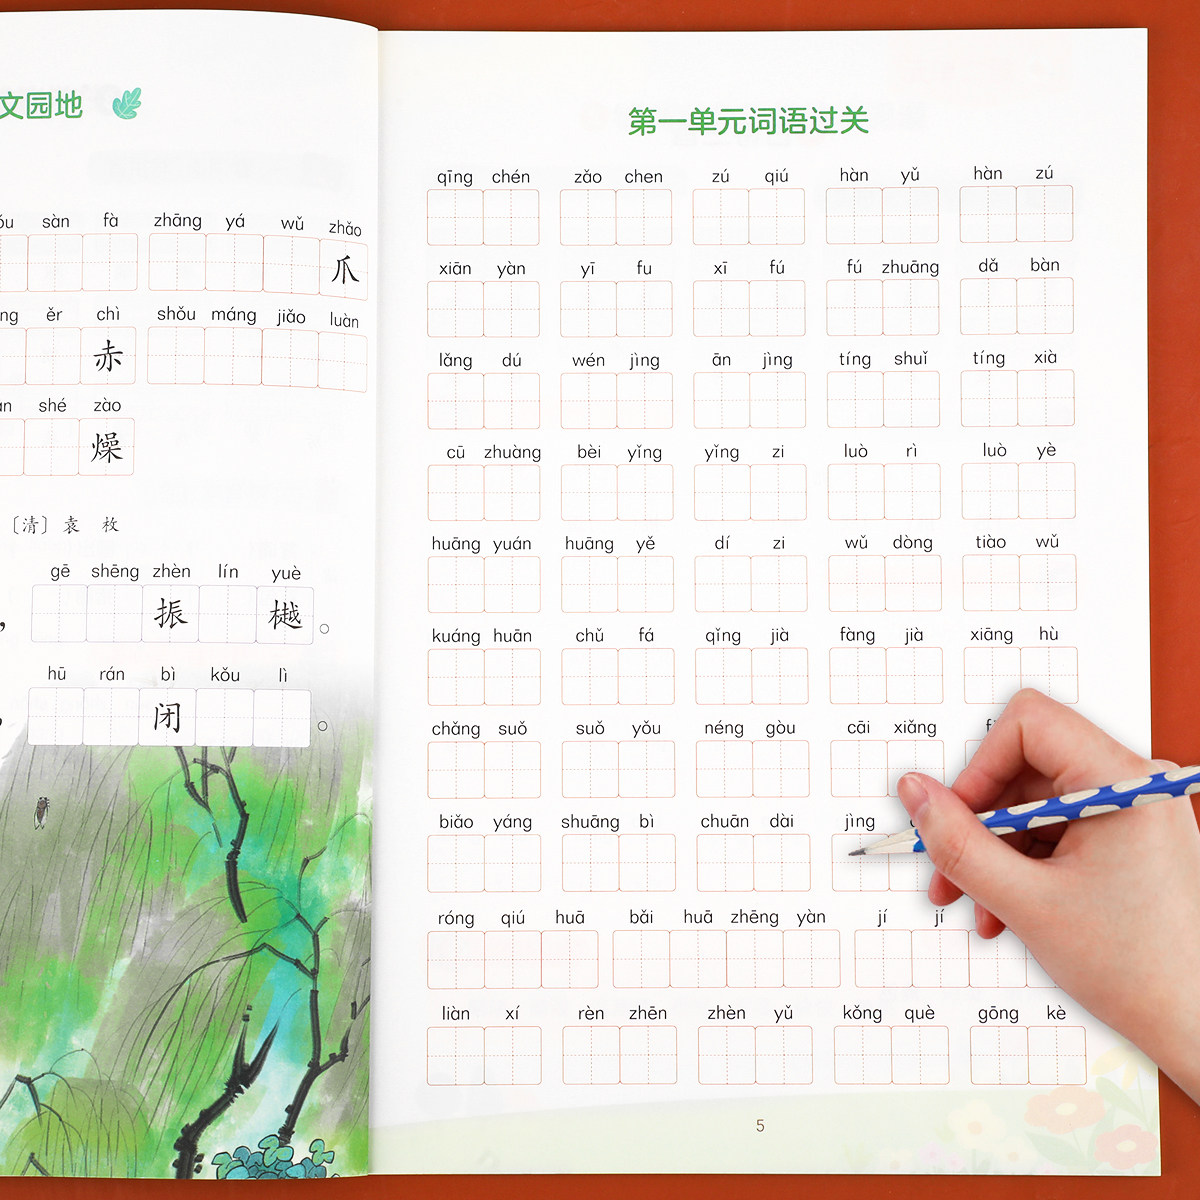 文园地
sàn fà zhāng yá wǔ zhǎo
爪
ěr chì shǒu máng jiǎo luàn
赤
shé zào
燥
〔清〕袁 枚
gē shēng zhèn lín yuè
，振樾。
hū rán bì kǒu lì
，闭。
第一单元词语过关
qīng chén zǎo chen zú qiú hàn yǔ hàn zú
xiān yàn yī fu xī fú fú zhuāng dǎ bàn
lǎng dú wén jìng ān jìng tíng shuǐ tíng xià
cū zhuàng bèi yǐng yǐng zi luò rì luò yè
huāng yuán huāng yě dí zi wǔ dòng tiào wǔ
kuáng huān chǔ fá qǐng jià fàng jià xiāng hù
chǎng suǒ suǒ yǒu néng gòu cāi xiǎng
biǎo yáng shuāng bì chuān dài jìng
róng qiú huā bǎi huā zhēng yàn jí jí
liàn xí rèn zhēn zhèn yǔ kǒng què gōng kè
5